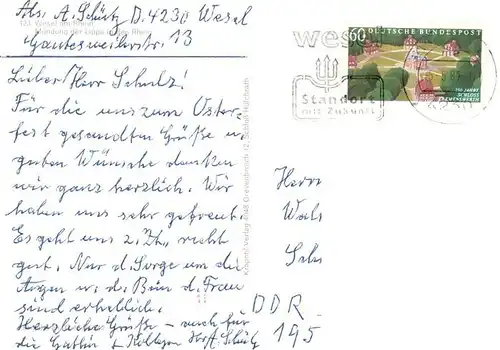 Abs. A. Schütz, D. 4230 Wesel
Gantesweilerstr. 13
Wesel am Rhein
Mündung der Lippe in den Rhein
Lieber Herr Schulz!
Für die uns zum Oster-
fest gesandten Grüße u.
guten Wünsche danken
wir ganz herzlich. Wir
haben uns sehr gefreut.
Es geht uns z. Zt. recht
gut. Nur d. Sorge um die
Augen u. d. d. Frau
sind erheblich.
Herzliche Grüße – auch für
die Gattin + Kollegen Ihr A. Schütz
60 DEUTSCHE BUNDESPOST
SCHLOSS
wesel
Standort
mit Zukunft
4230
Herrn
Wal
Sch
DDR
195